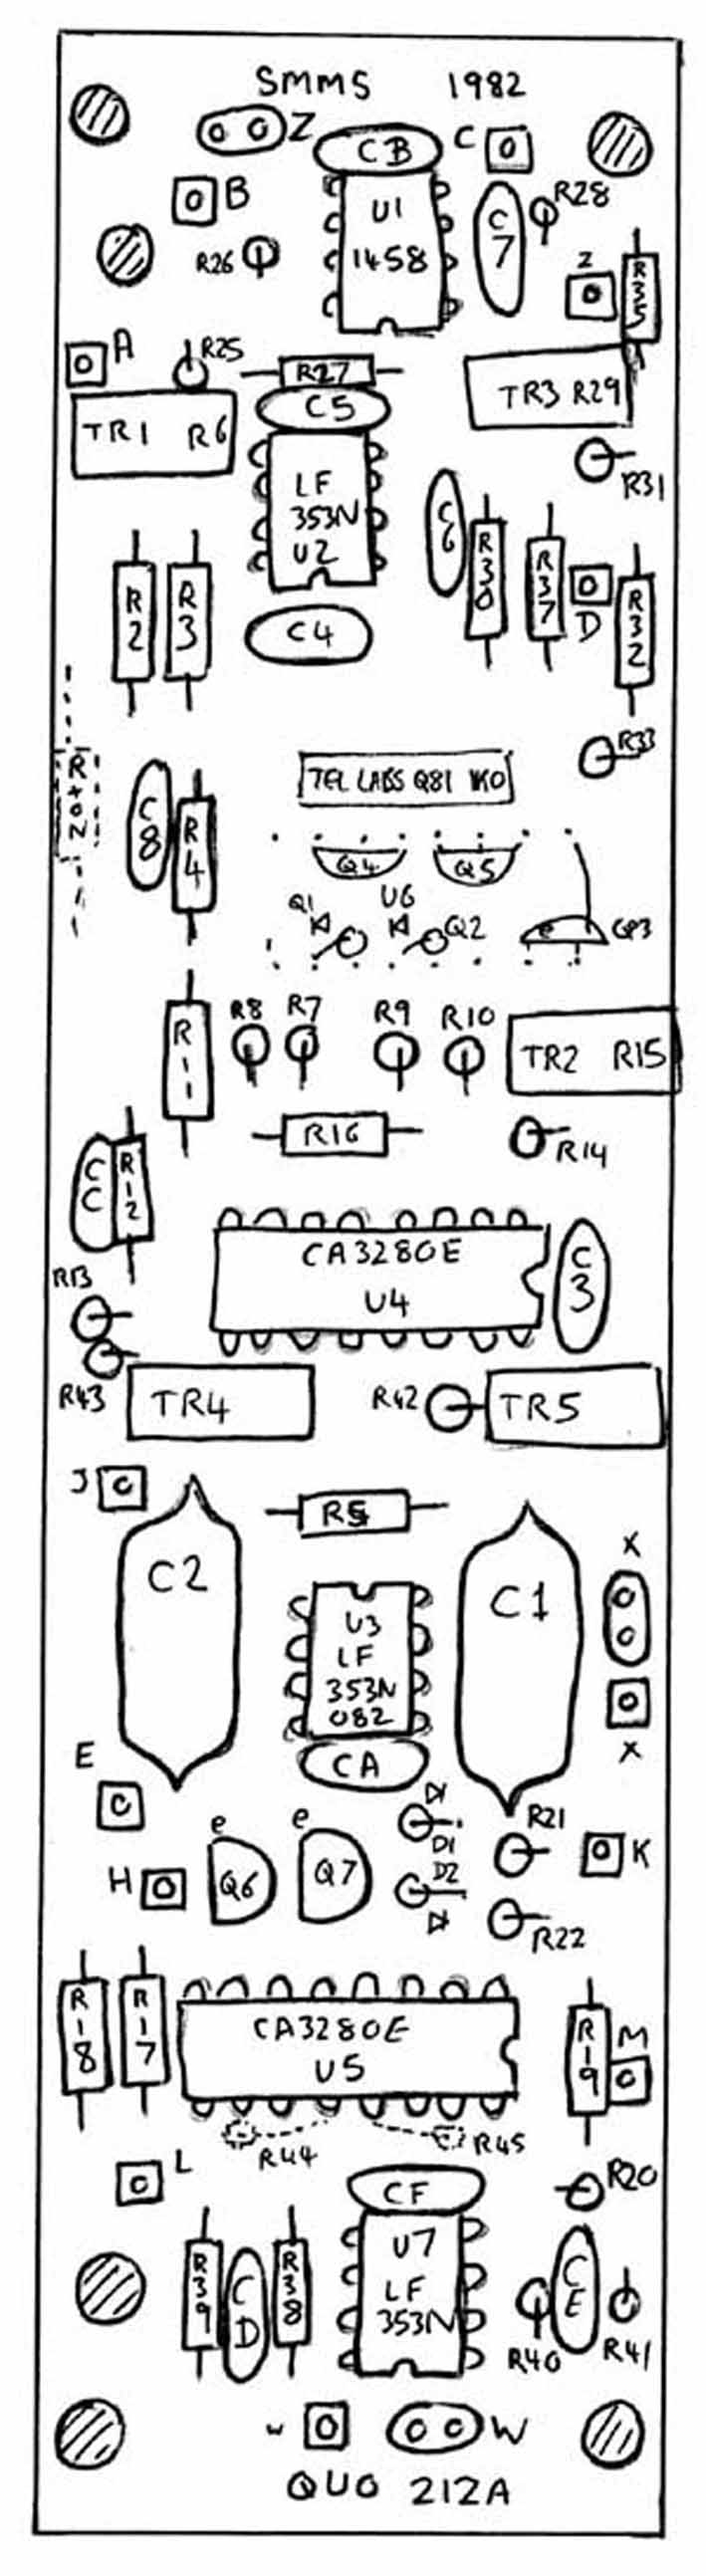 SMMS 1982
Z
CB
C
B
U1
1458
C7
R28
R26
Z
R35
A
R25
R27
C5
TR3 R29
TR1 R6
LF
353N
U2
R31
C6
R30
R37
D
R32
R2
R3
C4
R33
TEL LABS Q81 1K0
C8
R4
Q4
Q5
Q1
U6
Q2
e
R11
R8
R7
R9
R10
TR2 R15
R16
R14
CC
R12
CA3280E
U4
C3
R13
R43
TR4
R42
TR5
J
C
R5
C2
C1
X
U3
LF
353N
082
X
CA
E
C
D1
R21
e
e
K
H
Q6
Q7
D2
R22
R18
R17
CA3280E
U5
R19
M
R44
R45
L
CF
R20
R39
CD
R38
U7
LF
353N
CE
R40
R41
W
W
QUO 212A